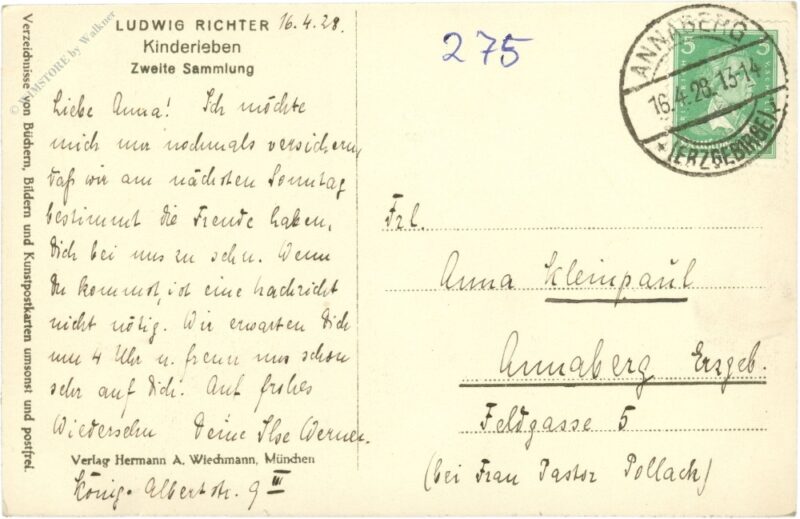 LUDWIG RICHTER
Kinderleben
Zweite Sammlung
16.4.28.
Liebe Anna! Ich möchte
mich nur nochmals versichern,
daß wir am nächsten Sonntag
bestimmt die Freude haben,
Dich bei uns zu sehn. Wenn
Du kommst, ist eine Nachricht
nicht nötig. Wir erwarten Dich
um 4 Uhr u. freun uns schon
sehr auf Dich. Auf frohes
Wiedersehn Deine Ilse Werner.
Verlag Hermann A. Wiechmann, München
König-Albertstr. 9 III
Verzeichnisse von Büchern, Bildern und Kunstpostkarten umsonst und postfrei.
© by Walkner
275
ANNABERG
16.4.28.13-14
*(ERZGEBIRGE)
5
5
Frl.
Anna Kleinpaul
Annaberg Erzgeb.
Feldgasse 5
(bei Frau Pastor Pollach)